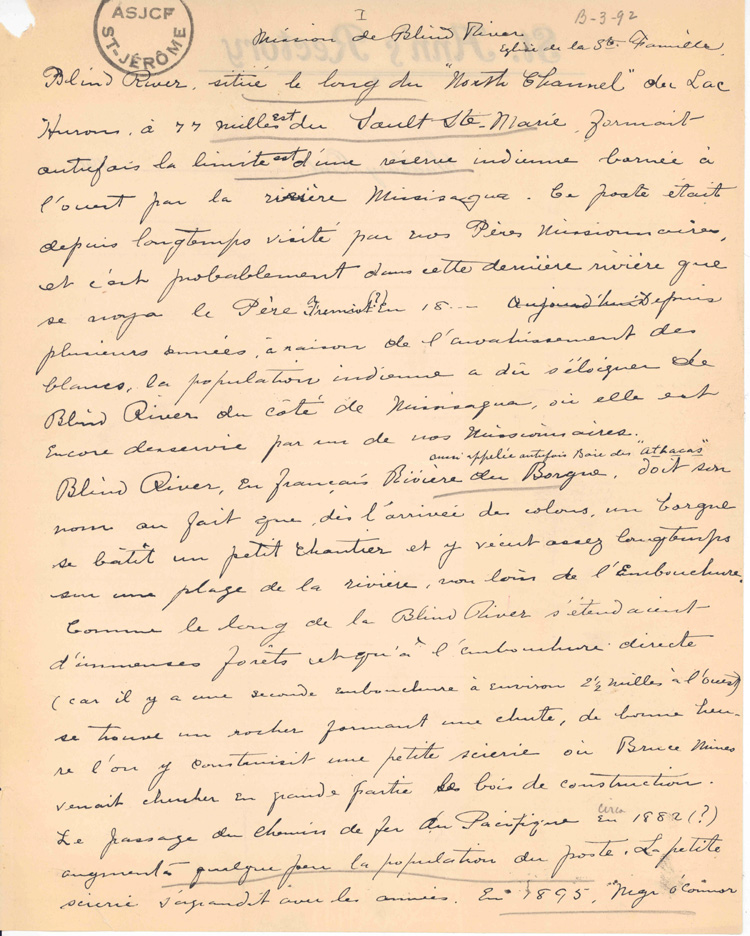 ASJCF
ST-JÉRÔME
I
B-3-92
Mission de Blind River.
Eglise de la Ste Famille.
Blind River, situé le long du "North Channel" du Lac
Hurons, à 77 milles est du Sault Ste-Marie, formait
autrefois la limite est d'une réserve indienne bornée à
l'ouest par la rivière Missisagua. Ce poste était
depuis longtemps visité par nos Pères Missionnaires,
et c'est probablement dans cette dernière rivière que
se noya le Père Frémiot (?) En 18 -- Aujourd'hui Depuis
plusieurs années, à raison de l'avahissement des
blancs, la population indienne a dû s'éloigner de
Blind River du côté de Missisagua, où elle est
Encore desservie par un de nos Missionnaires.
aussi appelée autrefois Baie des "Athacas"
Blind River, en français Rivière du Borgne, doit son
nom au fait que, dès l'arrivée des colons, un borgne
se bâtit un petit chantier et y vécut assez longtemps
sur une plage de la rivière, non loin de l'Embouchure.
Comme le long de la Blind River s'étendaient
d'immenses forêts et qu'à l'embouchure directe
(car il y a une seconde embouchure à environ 2½ milles à l'ouest)
se trouve un rocher formant une chute, de bonne heu-
re l'on y construisit une petite scierie où Bruce Mines
venait chercher en grande partie le bois de construction.
Le passage du chemin de fer du Pacifique circa En 1882 (?)
augmenta quelque peu la population du poste. La petite
scierie s'agrandit avec les années. En 1895, "Mgr O'Connor